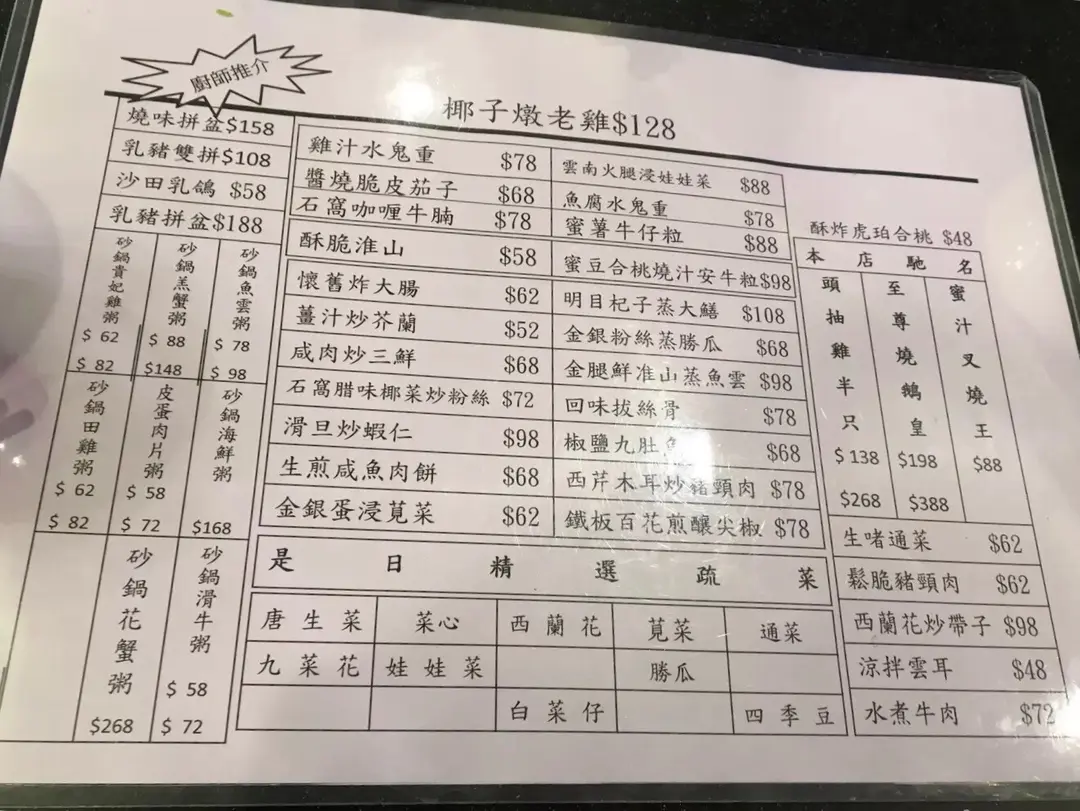 廚師推介
椰子燉老雞$128
燒味拼盆$158
乳豬雙拼$108
沙田乳鴿 $58
乳豬拼盆$188
砂鍋貴妃雞粥
$ 62
$ 82
砂鍋羔蟹粥
$ 88
$148
砂鍋魚雲粥
$ 78
$ 98
砂鍋田雞粥
$ 62
$ 82
皮蛋肉片粥
$ 58
$ 72
砂鍋海鮮粥
$168
砂鍋花蟹粥
$268
砂鍋滑牛粥
$ 58
$ 72
雞汁水鬼重 $78
醬燒脆皮茄子 $68
石窩咖喱牛腩 $78
酥脆淮山 $58
雲南火腿浸娃娃菜 $88
魚腐水鬼重 $78
蜜薯牛仔粒 $88
蜜豆合桃燒汁安牛粒$98
懷舊炸大腸 $62
薑汁炒芥蘭 $52
咸肉炒三鮮 $68
石窩腊味椰菜炒粉絲 $72
滑旦炒蝦仁 $98
生煎咸魚肉餅 $68
金銀蛋浸莧菜 $62
明目杞子蒸大鱔 $108
金銀粉絲蒸勝瓜 $68
金腿鮮准山蒸魚雲 $98
回味拔絲骨 $78
椒鹽九肚魚 $68
西芹木耳炒豬頸肉 $78
鐵板百花煎釀尖椒 $78
是日精選疏菜
唐生菜 菜心 西蘭花 莧菜 通菜
九菜花 娃娃菜 勝瓜
白菜仔 四季豆
酥炸虎珀合桃 $48
本店馳名
頭抽雞半只
$ 138
$268
至尊燒鵝皇
$198
$388
蜜汁叉燒王
$88
生啫通菜 $62
鬆脆豬頸肉 $62
西蘭花炒帶子 $98
涼拌雲耳 $48
水煮牛肉 $72